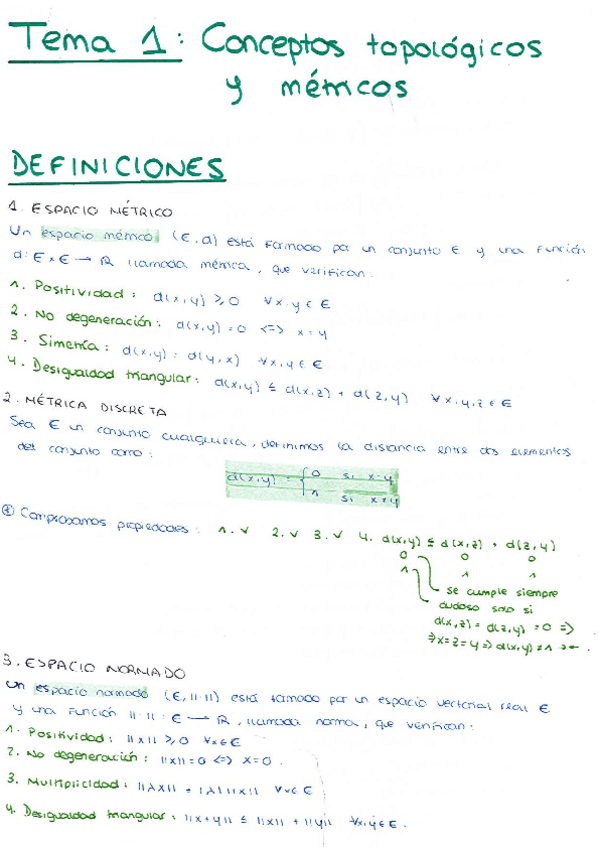 Tema 1: Conceptos topológicos
y métricos
DEFINICIONES
1. ESPACIO MÉTRICO
Un espacio métrico (E,d) está formado por un conjunto E y una función
d: E×E → ℝ llamada métrica, que verifican:
1. Positividad: d(x,y) ≥ 0 ∀x,y ∈ E
2. No degeneración: d(x,y) = 0 <=> x = y
3. Simetría: d(x,y) = d(y,x) ∀x,y ∈ E
4. Desigualdad triangular: d(x,y) ≤ d(x,z) + d(z,y) ∀x,y,z ∈ E
2. MÉTRICA DISCRETA
Sea E un conjunto cualquiera, definimos la distancia entre dos elementos
del conjunto como:
d(x,y) = { 0 si x=y
1 si x≠y
* Comprobamos propiedades: 1. ✓ 2. ✓ 3. ✓ 4. d(x,y) ≤ d(x,z) + d(z,y)
0 0 0
1 1 1
se cumple siempre
dudoso solo si
d(x,z) = d(z,y) = 0 =>
=> x=z=y => d(x,y) ≠ 1 →←.
3. ESPACIO NORMADO
Un espacio normado (E, ||·||) está formado por un espacio vectorial real E
y una función ||·||: E → ℝ, llamada norma, que verifican:
1. Positividad: ||x|| ≥ 0 ∀x∈E
2. No degeneración: ||x|| = 0 <=> x = 0.
3. Multiplicidad: ||λx|| = |λ| ||x|| ∀v∈E
4. Desigualdad triangular: ||x+y|| ≤ ||x|| + ||y|| ∀x,y ∈ E.